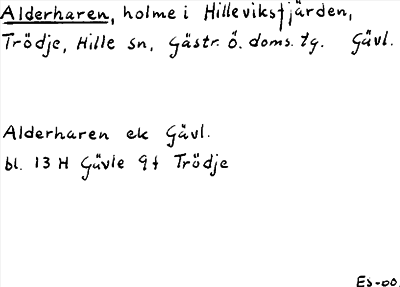 Alderharen, holme i Hilleviksfjärden,
Trödje, Hille sn, Gästr. ö. doms. tg. Gävl.
Alderharen ek Gävl.
bl. 13 H Gävle 9f Trödje